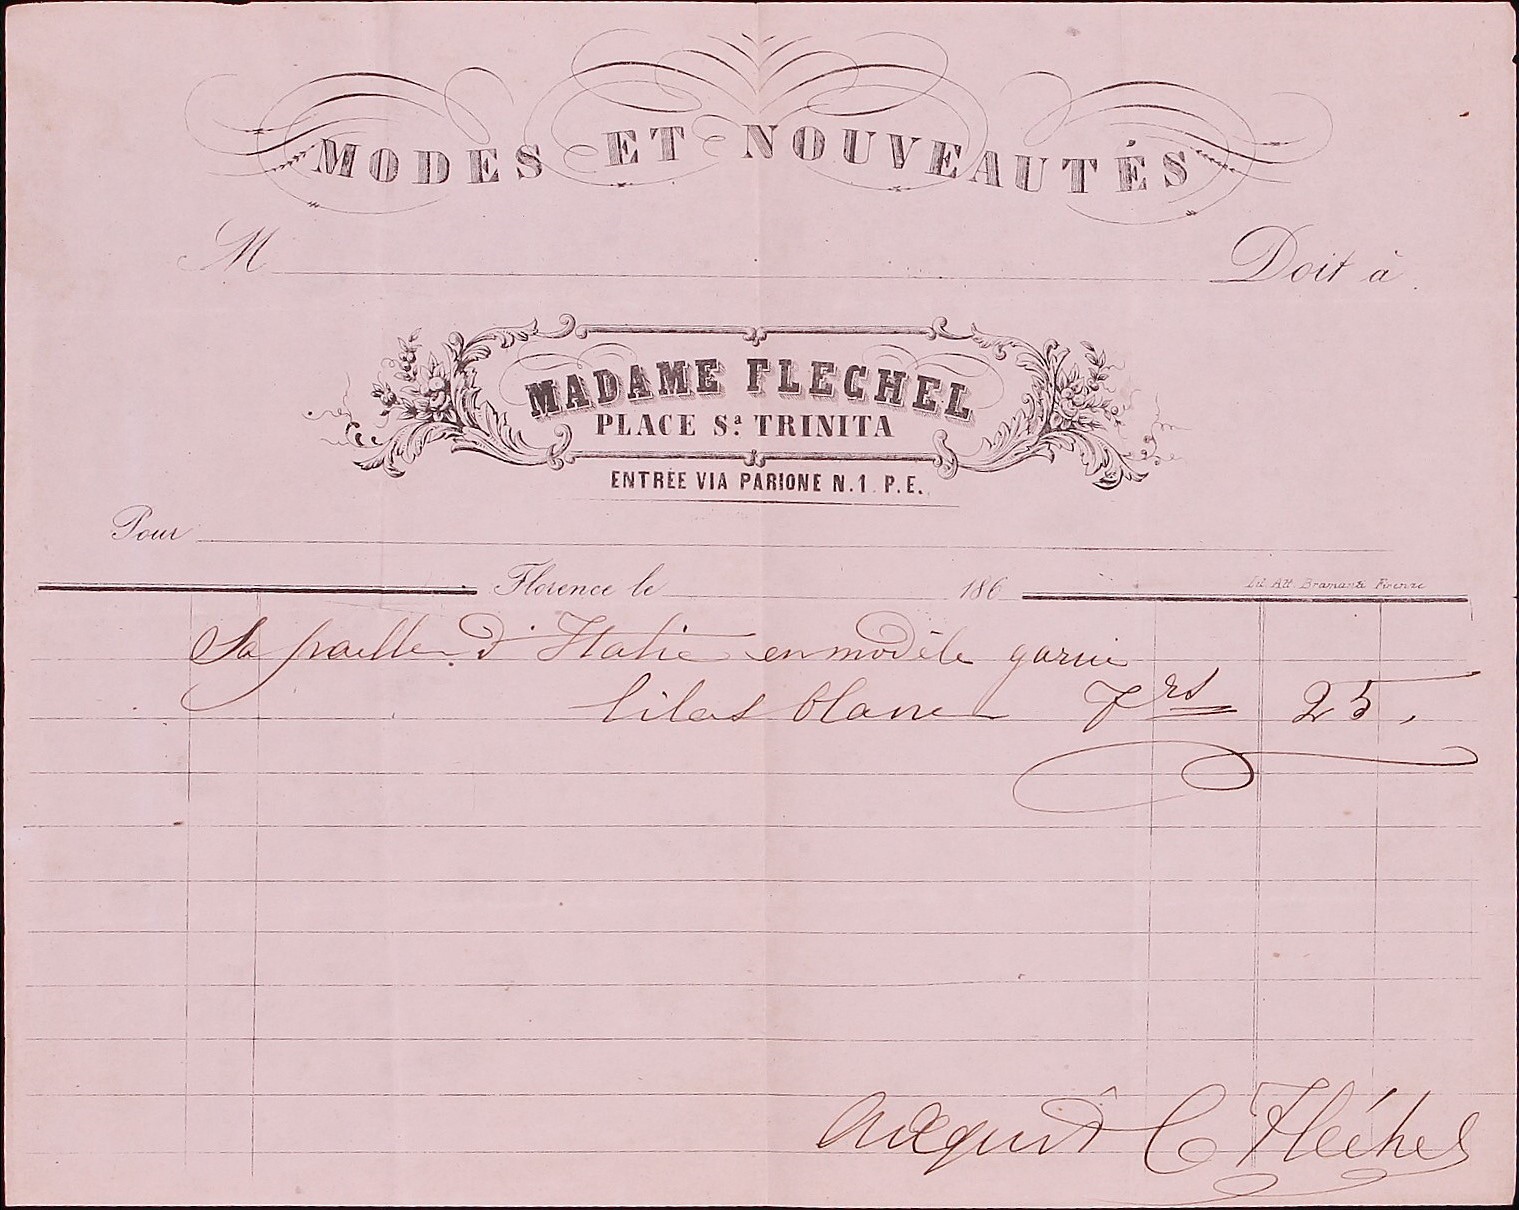 MODES ET NOUVEAUTÉS
M Doit à
MADAME FLECHEL
PLACE Sª. TRINITA
ENTRÉE VIA PARIONE N.1. P.E.
Pour
Florence le 186
Lit. Alla Bramante Firenze
Sa paille d'Italie en modèle garni
lilas blanc Frs 25,
acquit C Fléchel